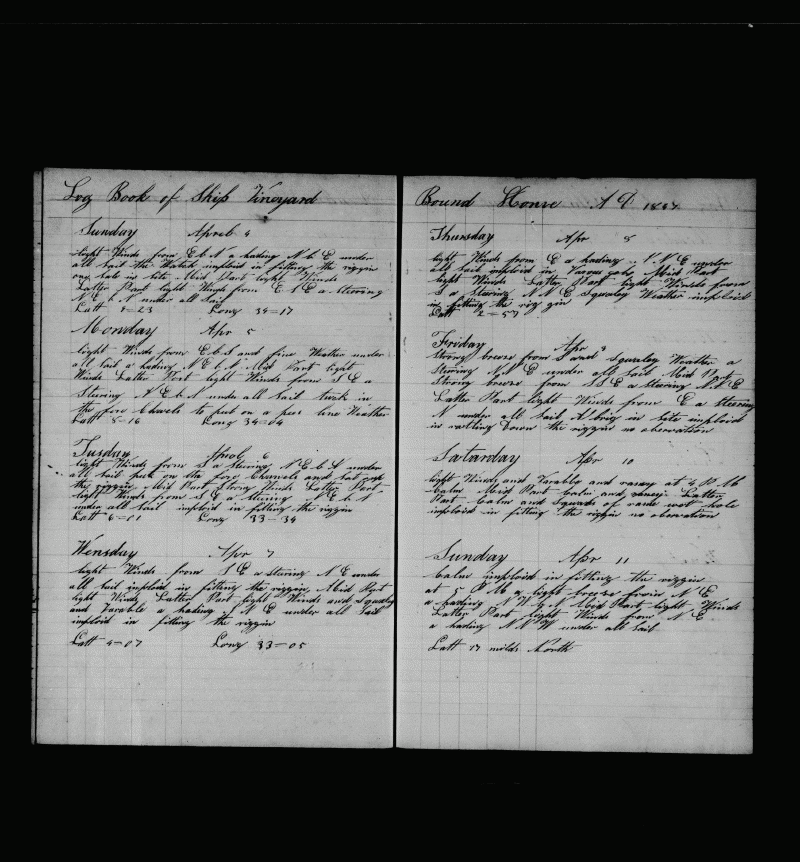 Log Book of Ship Vineyard
Sunday Aprel 4
light Winds from E b N a hading N b E under
all sail the Watch imploid in fitting the riggin
one sale in site Mid Part light Winds
Latter Part light Winds from E b E a Steering
N E b N under all Sail
Latt 9-23 Long 34-17
Monday Apr 5
light Winds from E b S and fine Weather under
all sail a hading N E b N Mid Part light
Winds Latter Part light Winds from S E a
Stering N E b N under all Sail tuck in
the fore Chanels to put on a peec fine Weather
Latt 8-16 Long 34-04
Tusday Aprel 6
light Winds from S a stering N E b N under
all sail puk on the fore Chanels and
the riggin Mid Part Strong Winds Latter Part
light Winds from S E a stering N E b N
under all sail imploid in fitting the riggin
Latt 6-01 Long 33-34
Wensday Apr 7
light Winds from S E a Stering N E under
all sail imploid in fitting the riggin Mid Part
light Winds Latter Part light Winds and Squaley
and Varable a hading N E under all Sail
imploid in fitting the riggin
Latt 4-07 Long 33-05
Bound Home A D
Thursday Apr 8
light Winds from E a hading N N E under
all sail imploid in Varous jobs Mid Part
light Winds Latter Part light Winds from
S a Stering N N E Squaley Weather imploid
in fitting the riggin
Latt 2-57
Friday Apr 9
Strong breeze from S ward Squaley Weather a
Stering N N E under all sail Mid Part
Strong breeze from S S E a stering N N E
Latter Part light Winds from E a steering
N under all sail A brig in site imploid
in ratling Down the riggin no obervation
Satarday Apr 10
light Winds and Varably and raney at 4 P M
Calm Mid Part Calm and raney Latter
Part Calm and Squals of rane wot hole
imploid in fitting the riggin no obervation
Sunday Apr 11
Calm imploid in fitting the riggin
at 5 P M a light breeze from N E
a hading N W b N Mid Part light Winds
Latter Part light Winds from N E
a hading N N W under all sail
Latt 17 milds North